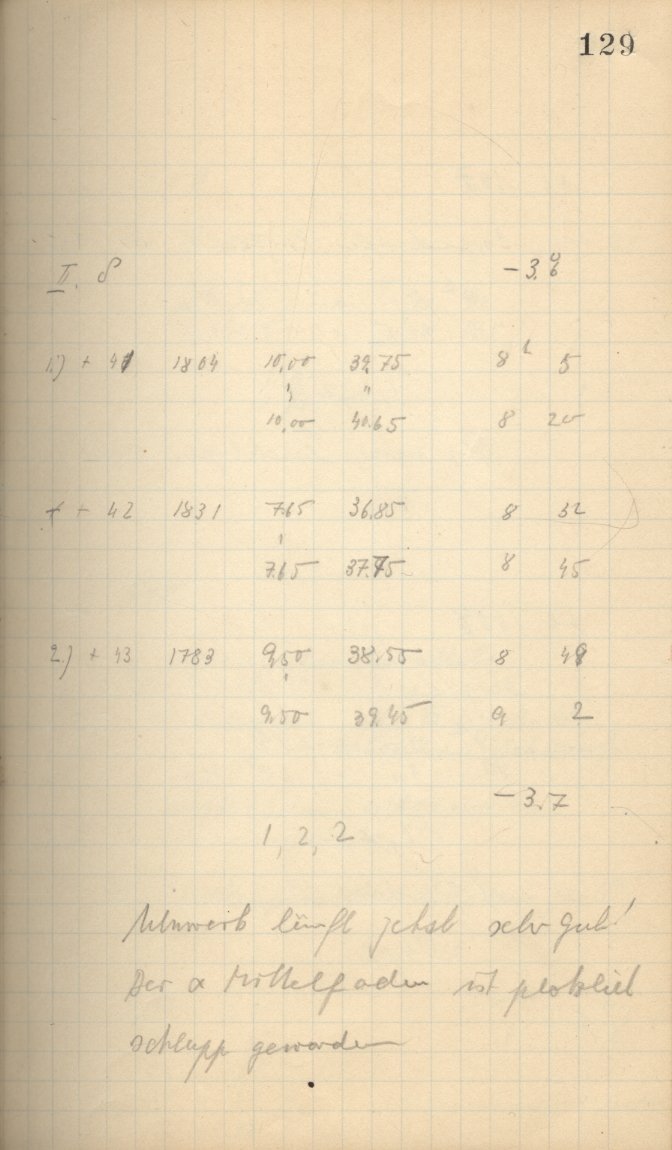 129
II. δ −3.6
1.) + 41 1804 10,00 39,75 8 h 5
" "
10,00 40.65 8 20
+ + 42 1831 7.65 36.85 8 32
7.65 37.75 8 45
2.) + 43 1783 9,50 38.55 8 49
9,50 39.45 9 2
−3.7
1, 2, 2
Uhrwerk läuft jetzt sehr gut!
Der α Mittelfaden ist plötzlich
schlapp geworden